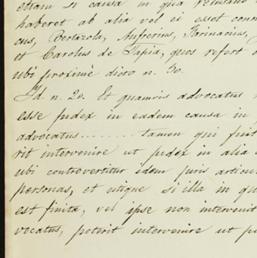 etiam si causa in qua
haberet ab alia vel ei esset conn
cus, Bertazola, Farinacius,
et Carolus de Tapia, quos refert
ubi proximè dicto n. 30.
Id n. 20. Et quamvis advocatus
esse judex in eadem causa in
advocatus......... tamen qui fuit
rit intervenire ut judex in alia
ubi controvertitur idem juris articu
personas, et utique si illa in qu
est finita, vel ipse non intervenit
vocatus, poterit intervenire ut ju